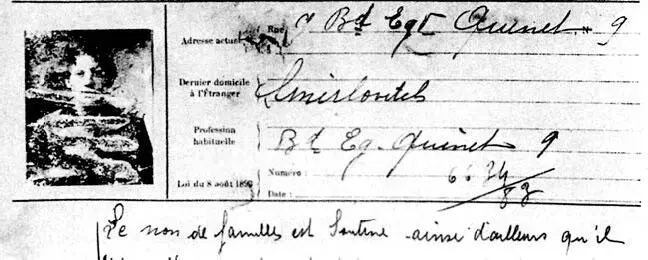 Adresse actuelle Rue 9 Bd Egt Quinet 9
Dernier domicile à l'Étranger Smirlovitch
Profession habituelle Bd Eg. Quinet 9
Loi du 8 août 1893 Numéro : 6634
Date : 83
Le nom de familles est Soutine ainsi d'ailleurs qu'il